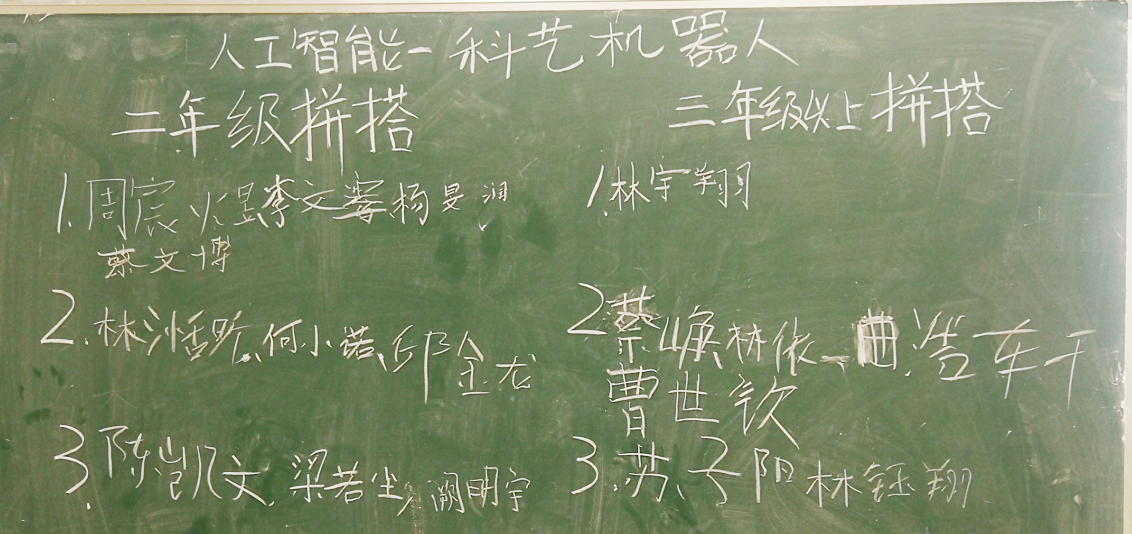 人工智能-科艺机器人
二年级拼搭
1.周宸火昱李文骞杨旻润
蔡文博
2.林湉昕、何小诺、邱金龙
3.陈凯文、梁若尘,阙明宇
三年级以上拼搭
1.林宇翔
2蔡焕林依
曹世钦
3.苏子阳林钰翔